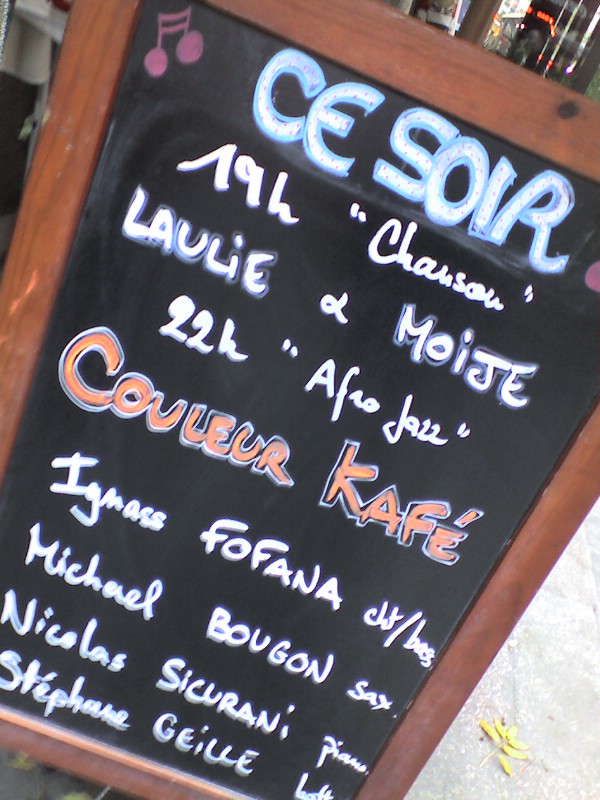 CE SOIR
19h "Chanson"
LAULiE & MOiJE
22h "Afro Jazz"
COULEUR KAFÉ
Ignass FOFANA cht/bas
Michael BOUGON sax.
Nicolas SiCURANi piano.
Stéphane GEiLLE batt.